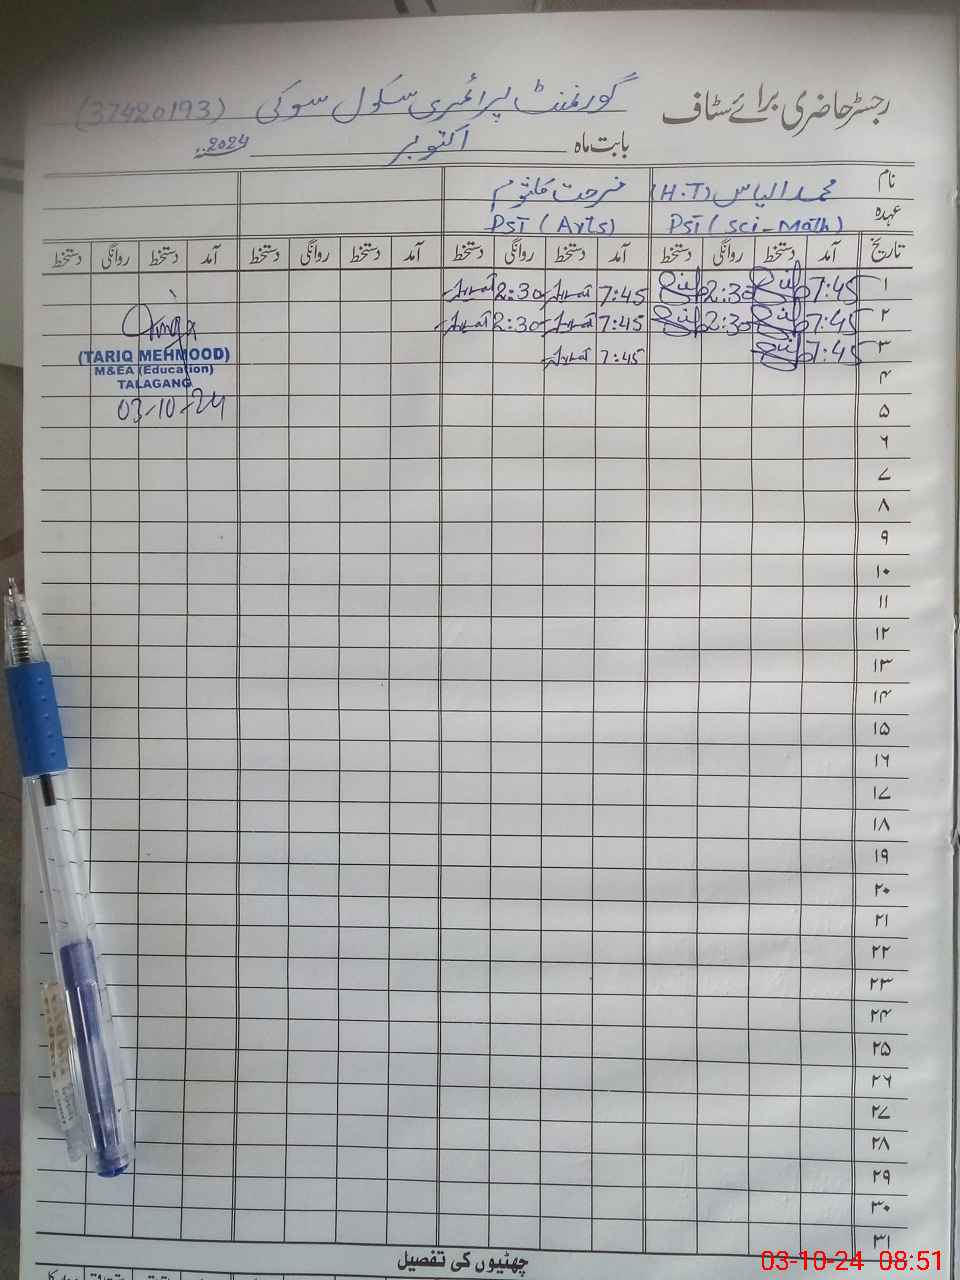 رجسٹر حاضری برائے سٹاف گورنمنٹ پرائمری سکول سوکی (37420193)
بابت ماہ اکتوبر 2024
نام محمد الیاس (H.T) فرحت کلثوم
عہدہ PST (Sci-Math) PST (Arts)
تاریخ آمد دستخط روانگی دستخط آمد دستخط روانگی دستخط آمد دستخط روانگی دستخط آمد دستخط روانگی دستخط
۱ 7:45 2:30 7:45 2:30
۲ 7:45 2:30 7:45 2:30
۳ 7:45 7:45
(TARIQ MEHMOOD)
M&EA (Education)
TALAGANG
03-10-24
۴
۵
۶
۷
۸
۹
۱۰
۱۱
۱۲
۱۳
۱۴
۱۵
۱۶
۱۷
۱۸
۱۹
۲۰
۲۱
۲۲
۲۳
۲۴
۲۵
۲۶
۲۷
۲۸
۲۹
۳۰
۳۱
چھٹیوں کی تفصیل
03-10-24 08:51